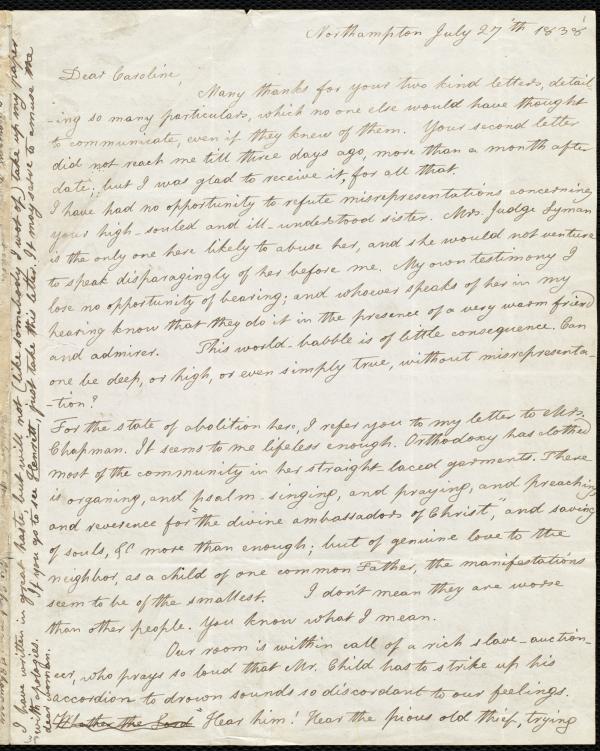 Northampton July 27th 1838
Dear Caroline,
Many thanks for your two kind letters, detail-
-ing so many particulars, which no one else would have thought
to communicate, even if they knew of them. Your second letter
did not reach me till three days ago, more than a month after
date; but I was glad to receive it, for all that.
I have had no opportunity to refute misrepresentations concerning
your high-souled and ill-understood sister. Mrs. Judge Lyman
is the only one here likely to abuse her, and she would not venture
to speak disparagingly of her before me. My own testimony I
lose no opportunity of bearing; and whoever speaks of her in my
hearing know that they do it in the presence of a very warm friend
and admirer. This world-babble is of little consequence. Can
one be deep, or high, or even simply true, without misrepresenta-
-tion?
For the state of abolition here, I refer you to my letter to Mrs.
Chapman. It seems to me lifeless enough. Orthodoxy has clothed
most of the community in her straight-laced garments. There
is organing, and psalm-singing, and praying, and preaching
and reverence for "the divine ambassadors of Christ", and saving
of souls, &c more than enough; but of genuine love to the
neighbor, as a child of one common Father, the manifestations
seem to be of the smallest. I don't mean they are worse
than other people. You know what I mean.
Our room is within call of a rich slave-auction-
eer, who prays so loud that Mr. Child has to strike up his
accordion to drown sounds so discordant to our feelings.
the Lord" Hear him! Hear the pious old thief, trying
I have written in great haste, but will not (like somebody I wot of) take up my paper
with apologies. If you go to see Henrietta, just take this letter. It may serve to amuse the
dear woman.